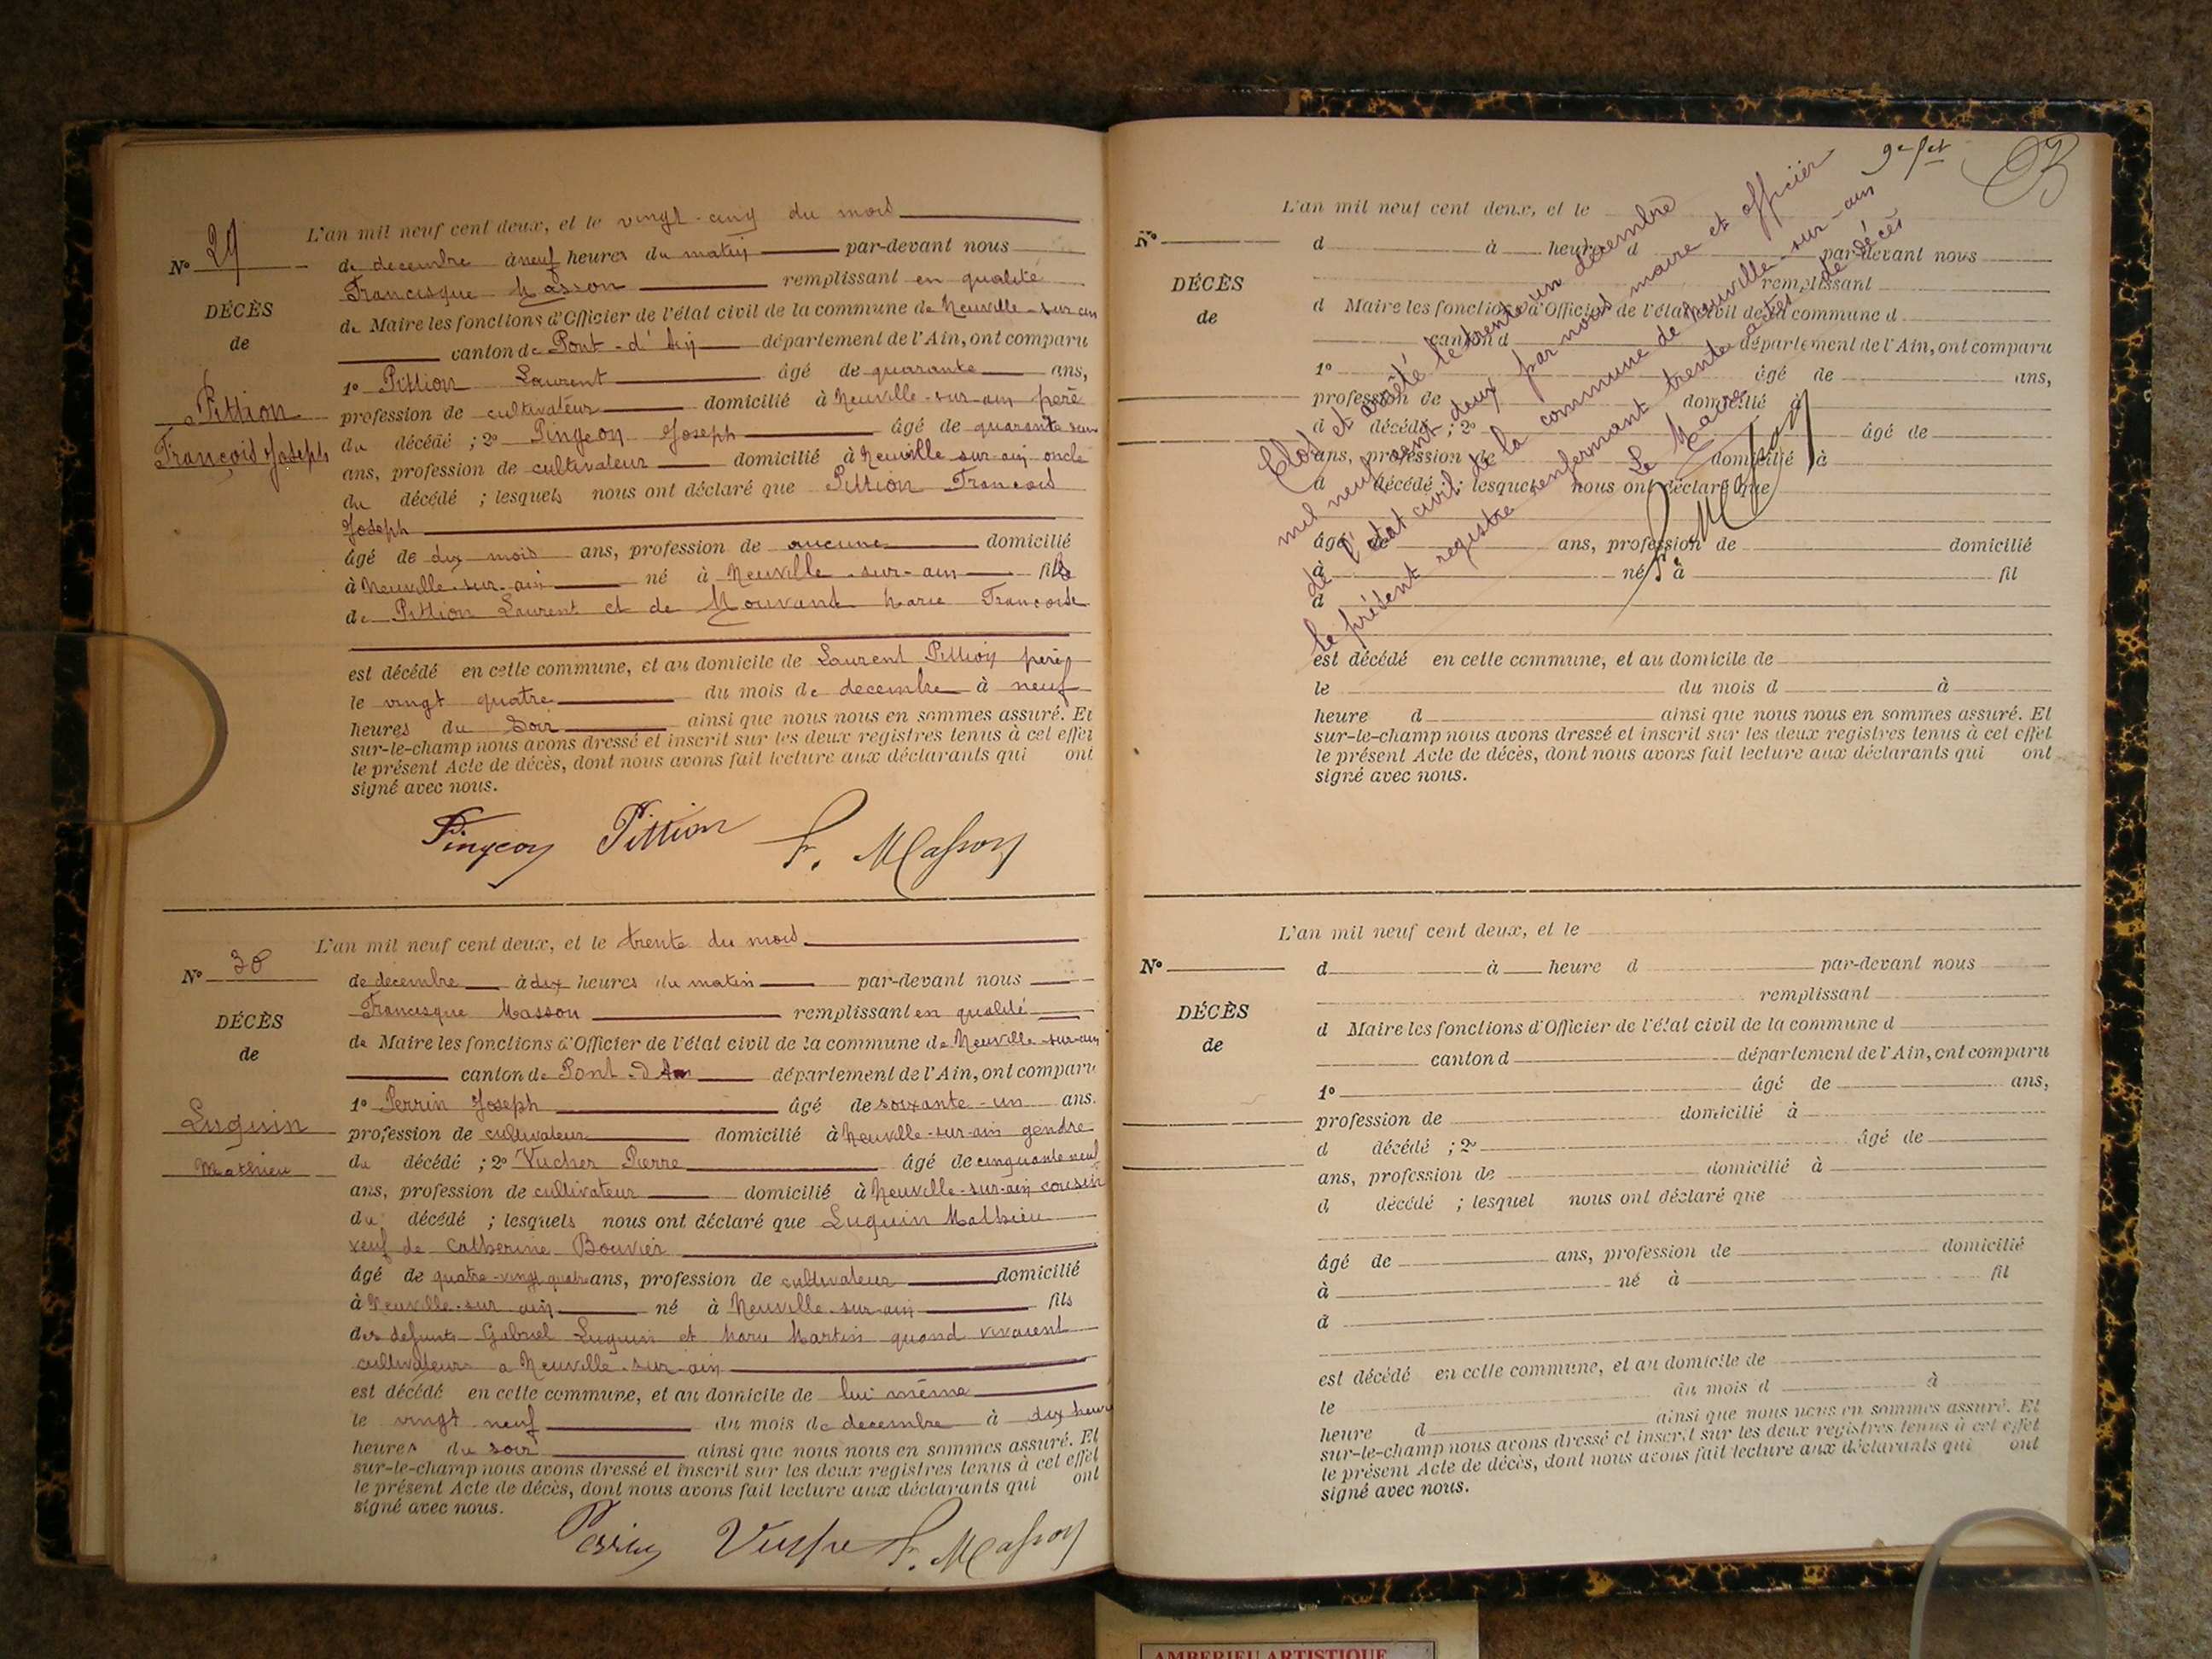 L'an mil neuf cent deux, et le vingt-cinq du mois
N° 29
de decembre à neuf heures du matin par-devant nous
Francisque Masson remplissant en qualité
DÉCÈS
de Maire les fonctions d'Officier de l'état civil de la commune de Neuville-sur-ain
de
canton de Pont-d'Ain département de l'Ain, ont comparu
1° Pittion Laurent âgé de quarante ans,
Pittion
profession de cultivateur domicilié à Neuville-sur-ain père
François Joseph
du décédé ; 2° Pingeon Joseph âgé de quarante
ans, profession de cultivateur domicilié à Neuville sur-ain oncle
du décédé ; lesquels nous ont déclaré que Pittion François
Joseph
âgé de dix mois ans, profession de aucune domicilié
à Neuville-sur-ain né à Neuville-sur-ain fils
de Pittion Laurent et de Mouvand Marie Francoise
est décédé en cette commune, et au domicile de Laurent Pittion père
le vingt quatre du mois de decembre à neuf
heures du Soir ainsi que nous nous en sommes assuré. Et
sur-le-champ nous avons dressé et inscrit sur les deux registres tenus à cet effet
le présent Acte de décès, dont nous avons fait lecture aux déclarants qui ont
signé avec nous.
Pingeon Pittion F. Masson
L'an mil neuf cent deux, et le trente du mois
N° 30
de decembre à dix heures du matin par-devant nous
Francisque Masson remplissant en qualité
DÉCÈS
de Maire les fonctions d'Officier de l'état civil de la commune de Neuville-sur-ain
de
canton de Pont-d'Ain département de l'Ain, ont comparu
1° Perrin Joseph âgé de soixante-un ans.
Luguin
profession de cultivateur domicilié à Neuville-sur-ain gendre
Mathieu
du décédé ; 2° Vucher Pierre âgé de cinquante neuf
ans, profession de cultivateur domicilié à Neuville-sur-ain cousin
du décédé ; lesquels nous ont déclaré que Luguin Mathieu
veuf de Catherine Bouvier
âgé de quatre-vingt quatre ans, profession de cultivateur domicilié
à Neuville-sur-ain né à Neuville-sur-ain fils
des defunts Gabriel Luguin et Marie Martin quand vivaient
cultivateurs a Neuville-sur-ain
est décédé en cette commune, et au domicile de lui même
le vingt neuf du mois de decembre à dix heures
heures du soir ainsi que nous nous en sommes assuré. Et
sur-le-champ nous avons dressé et inscrit sur les deux registres tenus à cet effet
le présent Acte de décès, dont nous avons fait lecture aux déclarants qui ont
signé avec nous.
Perrin F. Masson
B
L'an mil neuf cent deux, et le
N°
d à heure d par-devant nous
remplissant
DÉCÈS
d Maire les fonctions d'Officier de l'état civil de la commune d
de
canton d département de l'Ain, ont comparu
1° âgé de ans,
profession de domicilié à
d décédé ; 2° âgé de
ans, profession de domicilié à
d décédé ; lesquel nous ont déclaré que
âgé de ans, profession de domicilié
à né à fil
d
est décédé en cette commune, et au domicile de
le du mois d à
heure d ainsi que nous nous en sommes assuré. Et
sur-le-champ nous avons dressé et inscrit sur les deux registres tenus à cet effet
le présent Acte de décès, dont nous avons fait lecture aux déclarants qui ont
signé avec nous.
Clos et arrêté le trente un décembre
mil neuf cent deux par nous maire et officier
de l'état civil de la commune de Neuville-sur-ain
le présent registre renfermant trente actes de décès
Le Maire
F. Masson
L'an mil neuf cent deux, et le
N°
d à heure d par-devant nous
remplissant
DÉCÈS
d Maire les fonctions d'Officier de l'état civil de la commune d
de
canton d département de l'Ain, ont comparu
1° âgé de ans,
profession de domicilié à
d décédé ; 2° âgé de
ans, profession de domicilié à
d décédé ; lesquel nous ont déclaré que
âgé de ans, profession de domicilié
à né à fil
d
est décédé en cette commune, et au domicile de
le du mois d à
heure d ainsi que nous nous en sommes assuré. Et
sur-le-champ nous avons dressé et inscrit sur les deux registres tenus à cet effet
le présent Acte de décès, dont nous avons fait lecture aux déclarants qui ont
signé avec nous.
AMBERIEU ARTISTIQUE